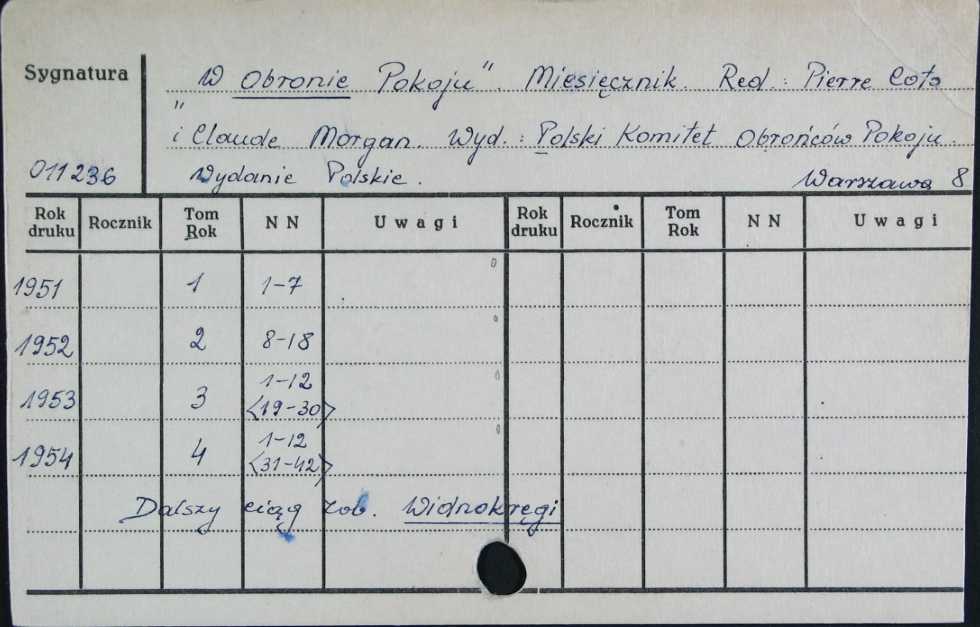 Sygnatura
W Obronie Pokoju". Miesięcznik. Red.: Pierre Coto
"
i Claude Morgan. Wyd.: Polski Komitet Obrońców Pokoju.
011236 Wydanie Polskie. Warszawa 8
Rok druku Rocznik Tom Rok NN Uwagi Rok druku Rocznik Tom Rok NN Uwagi
1951 1 1-7
1952 2 8-18
1953 3 1-12
<19-30>
1954 4 1-12
<31-42>
Dalszy ciąg zob. Widnokręgi